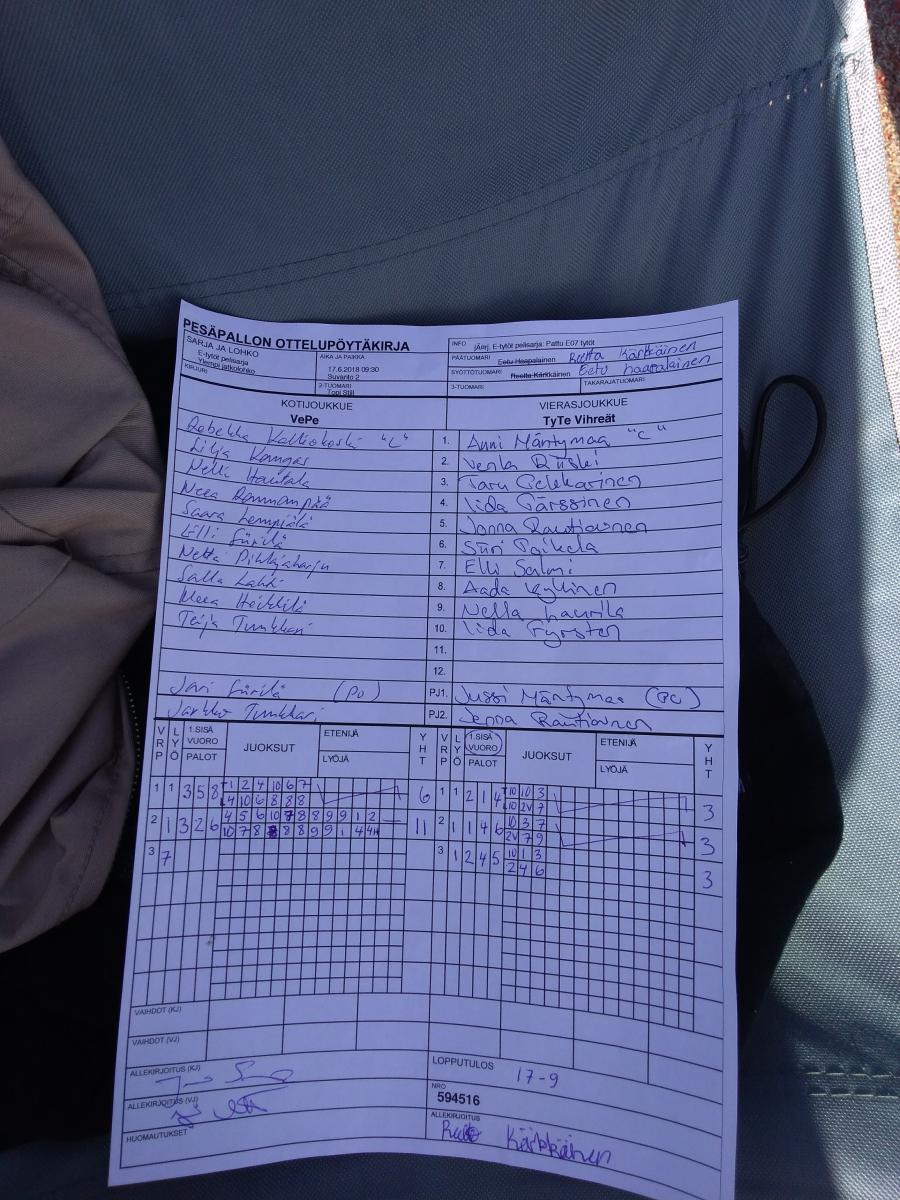 PESÄPALLON OTTELUPÖYTÄKIRJA
SARJA JA LOHKO
E-tytöt pelisarja
Ylempi jatkolohko
AIKA JA PAIKKA
17.6.2018 09:30
Suvanto 2
KIRJURI
2-TUOMARI
Topi Still
INFO Järj. E-tytöt pelisarja: Pattu E07 tytöt
PÄÄTUOMARI Eetu Haapalainen Reetta Kärkkäinen
SYÖTTÖTUOMARI Reetta Kärkkäinen Eetu Haapalainen
3-TUOMARI
TAKARAJATUOMARI
KOTIJOUKKUE
VePe
VIERASJOUKKUE
TyTe Vihreät
Rebekka Kalliokoski "C" 1. Anni Mäntymaa "C"
Lilja Kangas 2. Venla
Nelli Hautala 3. Taru Pelekasinen
Neea 4. Iida Pärssinen
Saara Lempiälä 5. Jonna Rautiainen
Elli Sürilä 6. Siiri Paikela
Netta Pihlajaharju 7. Elli Salmi
Salla Lahti 8. Aada Kyllinen
Meea Heikkilä 9. Nella Laurila
Teija Tunkkari 10. Iida Fyrsten
11.
12.
Jari Sürilä (PJ) PJ1. Jussi Mäntymaa (PJ)
Jarkko Tunkkari PJ2. Jenna Rautiainen
VRP LYÖ 1.SISÄ VUORO PALOT JUOKSUT ETENIJÄ LYÖJÄ YHT VRP LYÖ 1.SISÄ VUORO PALOT JUOKSUT ETENIJÄ LYÖJÄ YHT
1 1 3 5 8 1 2 4 10 6 7 6 1 1 2 1 4 10 10 3 3
4 10 6 8 8 8 10 2V 7
2 1 3 2 6 4 5 6 10 7 8 8 9 9 1 2 11 2 1 1 4 6 10 3 7 3
10 7 8 8 8 8 9 9 1 4 4H 2V 7 9
3 7 3 1 2 4 5 10 1 3 3
2 4 6
VAIHDOT (KJ)
VAIHDOT (VJ)
ALLEKIRJOITUS (KJ)
ALLEKIRJOITUS (VJ)
HUOMAUTUKSET
LOPPUTULOS 17-9
NRO
594516
ALLEKIRJOITUS
Kärkkäinen